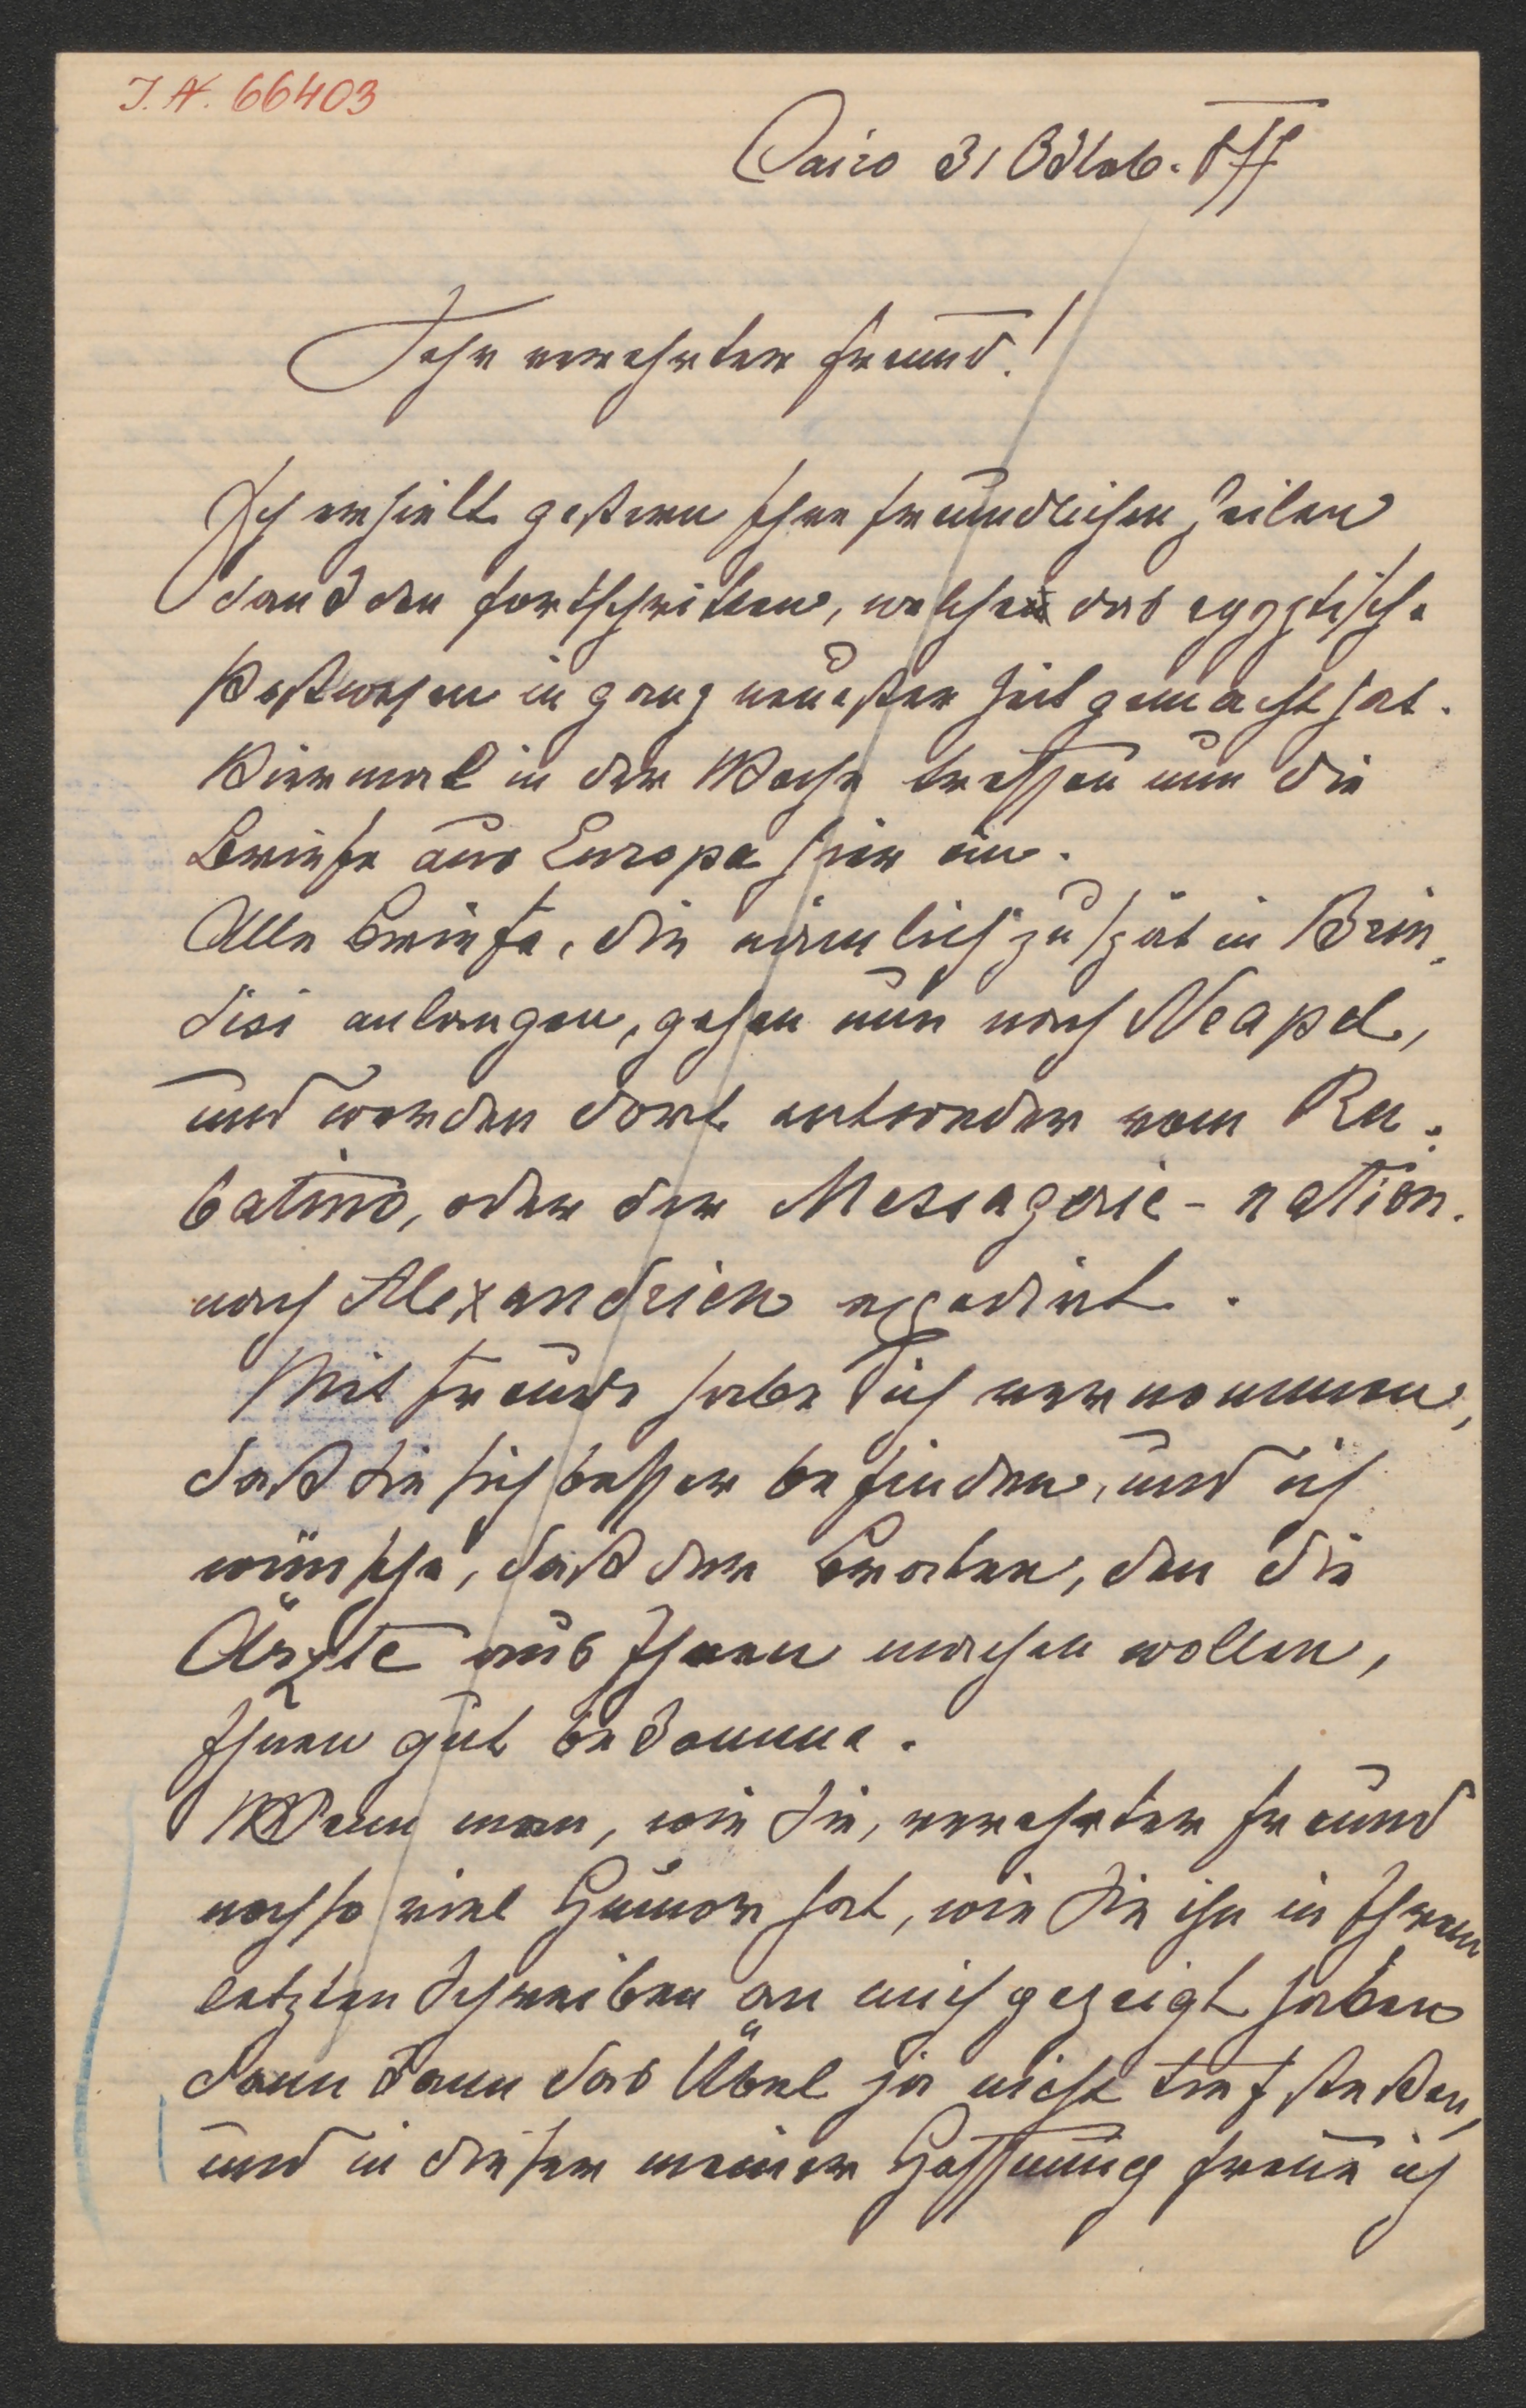 J. N. 66403
Cairo 31 Oktob. 877
Sehr verehrter Freund!
Ich erhielt gestern Ihre freundlichen Zeilen
dank den Fortschritten, welche das egyptische
Postwesen in ganz neuester Zeit gemacht hat.
Viermal in der Woche treffen nun die
Briefe aus Europa hier ein.
Alle Briefe, die nämlich zu spät in Brin-
disi anlangen, gehen nun nach Neapel,
und werden dort entweder vom Ru-
batino, oder der Messagerie-nation.
nach Alexandrien expedirt.
Mit Freude habe ich vernommen,
daß Sie sich besser befinden, und ich
wünsche, daß der Braten, den die
Ärzte aus Ihnen machen wollen,
Ihnen gut bekomme.
Wenn man, wie Sie, verehrter Freund
noch so viel Humor hat, wie Sie ihn in Ihrem
letzten Schreiben an mich gezeigt haben
dann kann das Übel ja nicht tief stecken,
und in dieser meiner Hoffnung freue ich